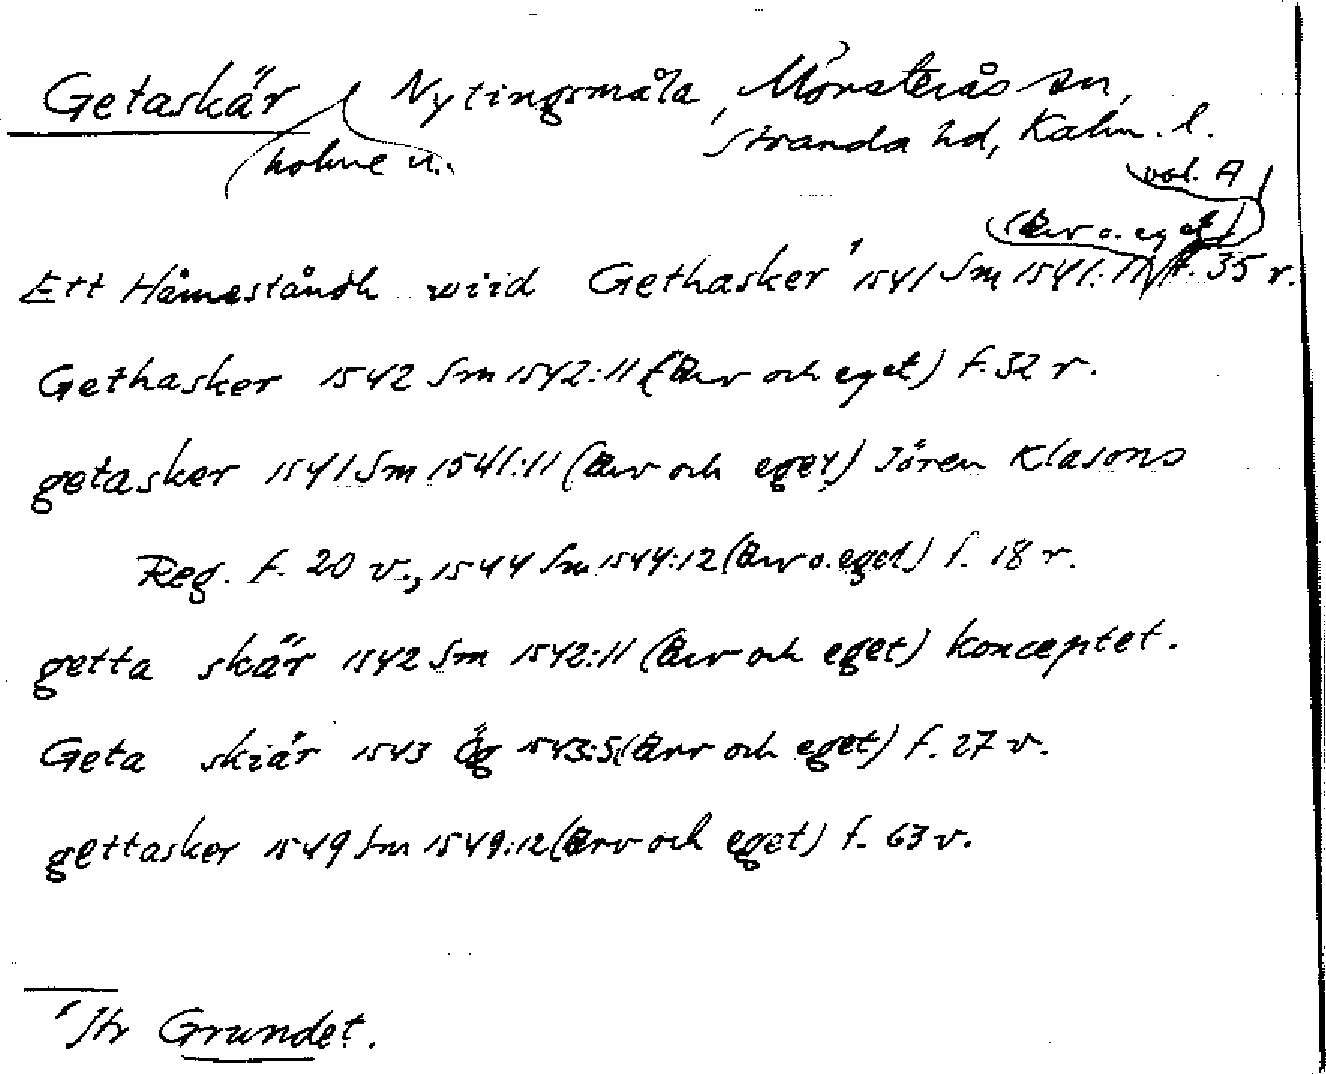 Getaskär Nytingsmåla, Mönsterås sn,
holme u. Stranda hd, Kalm. l.
vol. A
(Arv o. eget)
Ett Håmeståndh wiid Gethasker¹ 1541 Sm 1541:11 f. 35 r.
Gethasker 1542 Sm 1542:11 (Arv och eget) f. 32 r.
getasker 1541 Sm 1541:11 (Arv och eget) Jören Klasons
Reg. f. 20 v., 1544 Sm 1544:12 (Arv o. eget) f. 18 r.
getta skär 1542 Sm 1542:11 (Arv och eget) konceptet.
Geta skiär 1543 Ög 1543:5 (Arv och eget) f. 27 v.
gettasker 1549 Sm 1549:12 (Arv och eget) f. 63 v.
¹ Jfr Grundet.